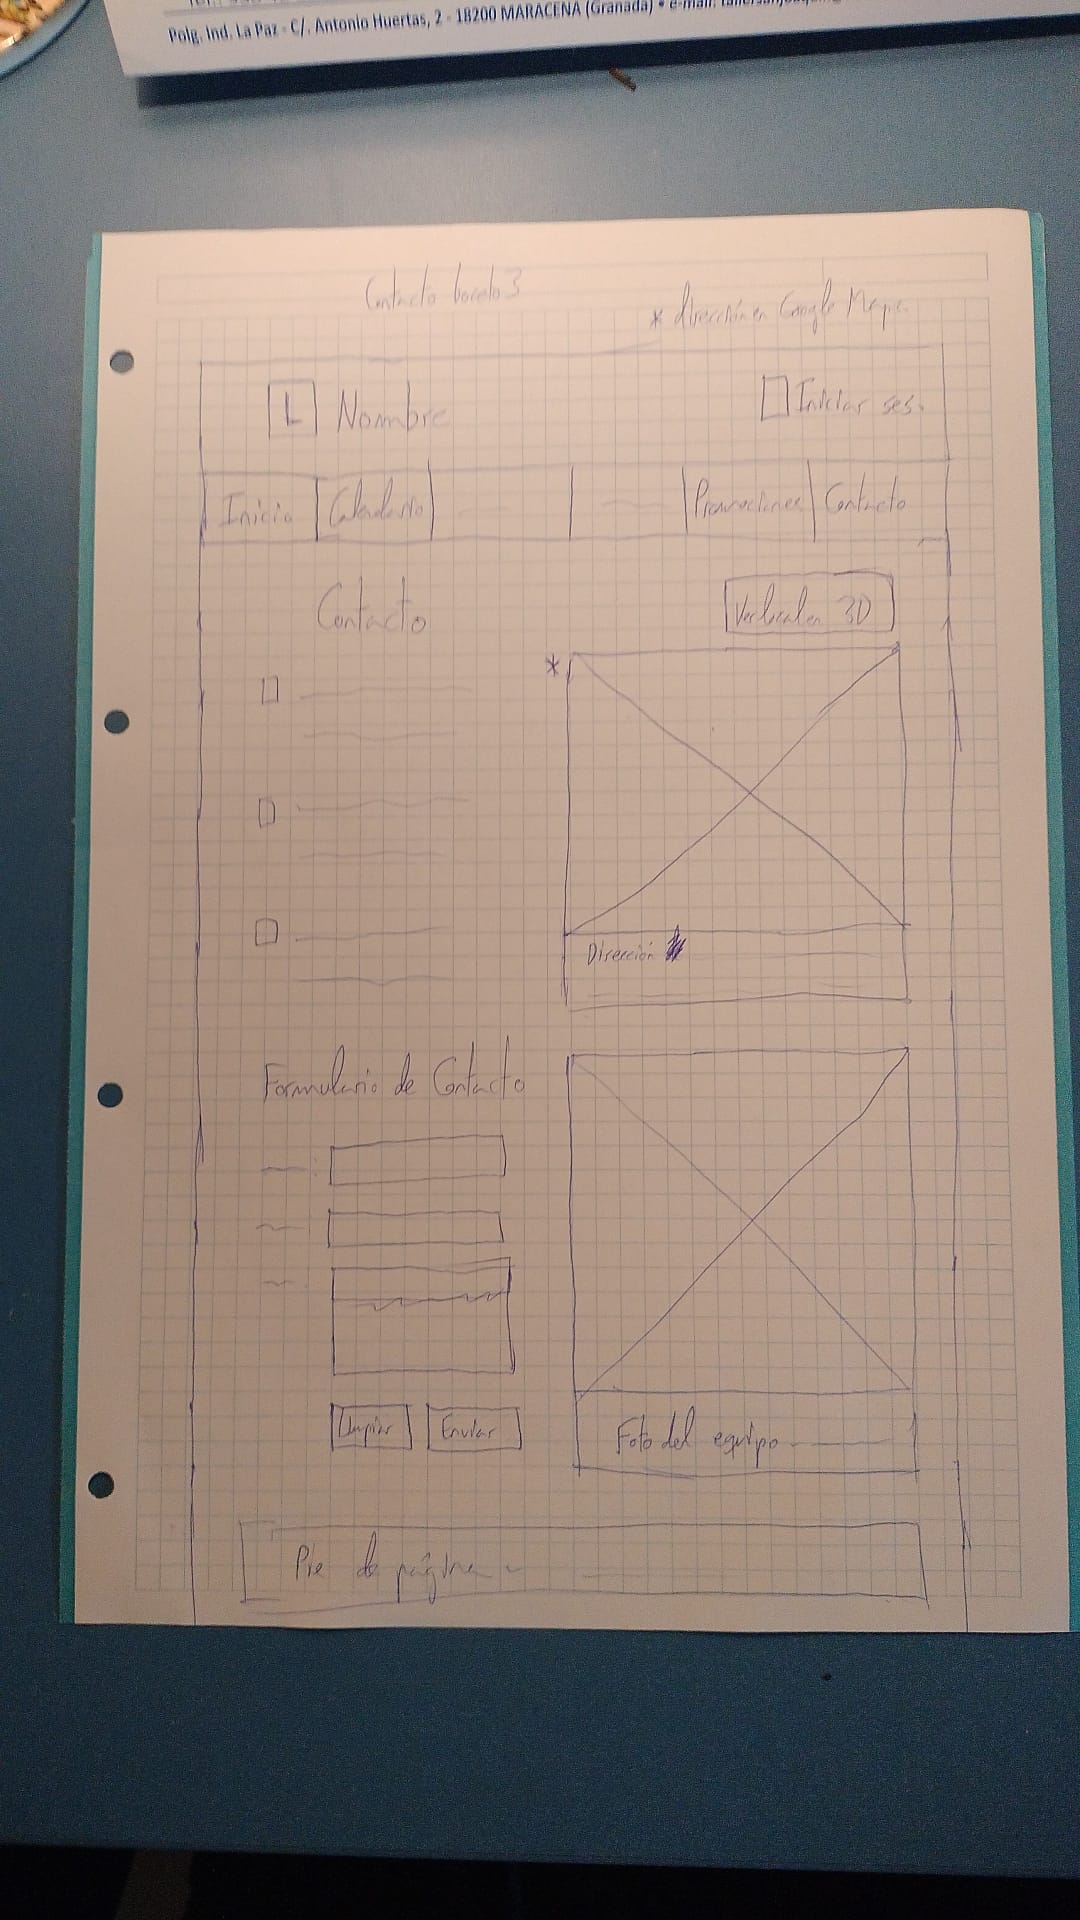 Polg. Ind. La Paz - C/. Antonio Huertas, 2 - 18200 MARACENA (Granada) • e-mail:
Contacto boceto 3
* dirección en Google Maps.
L Nombre
Iniciar ses.
Inicio Calendario Promociones Contacto
Contacto
Ver local en 3D
*
Dirección
Formulario de Contacto
Limpiar Enviar
Foto del equipo
Pie de página